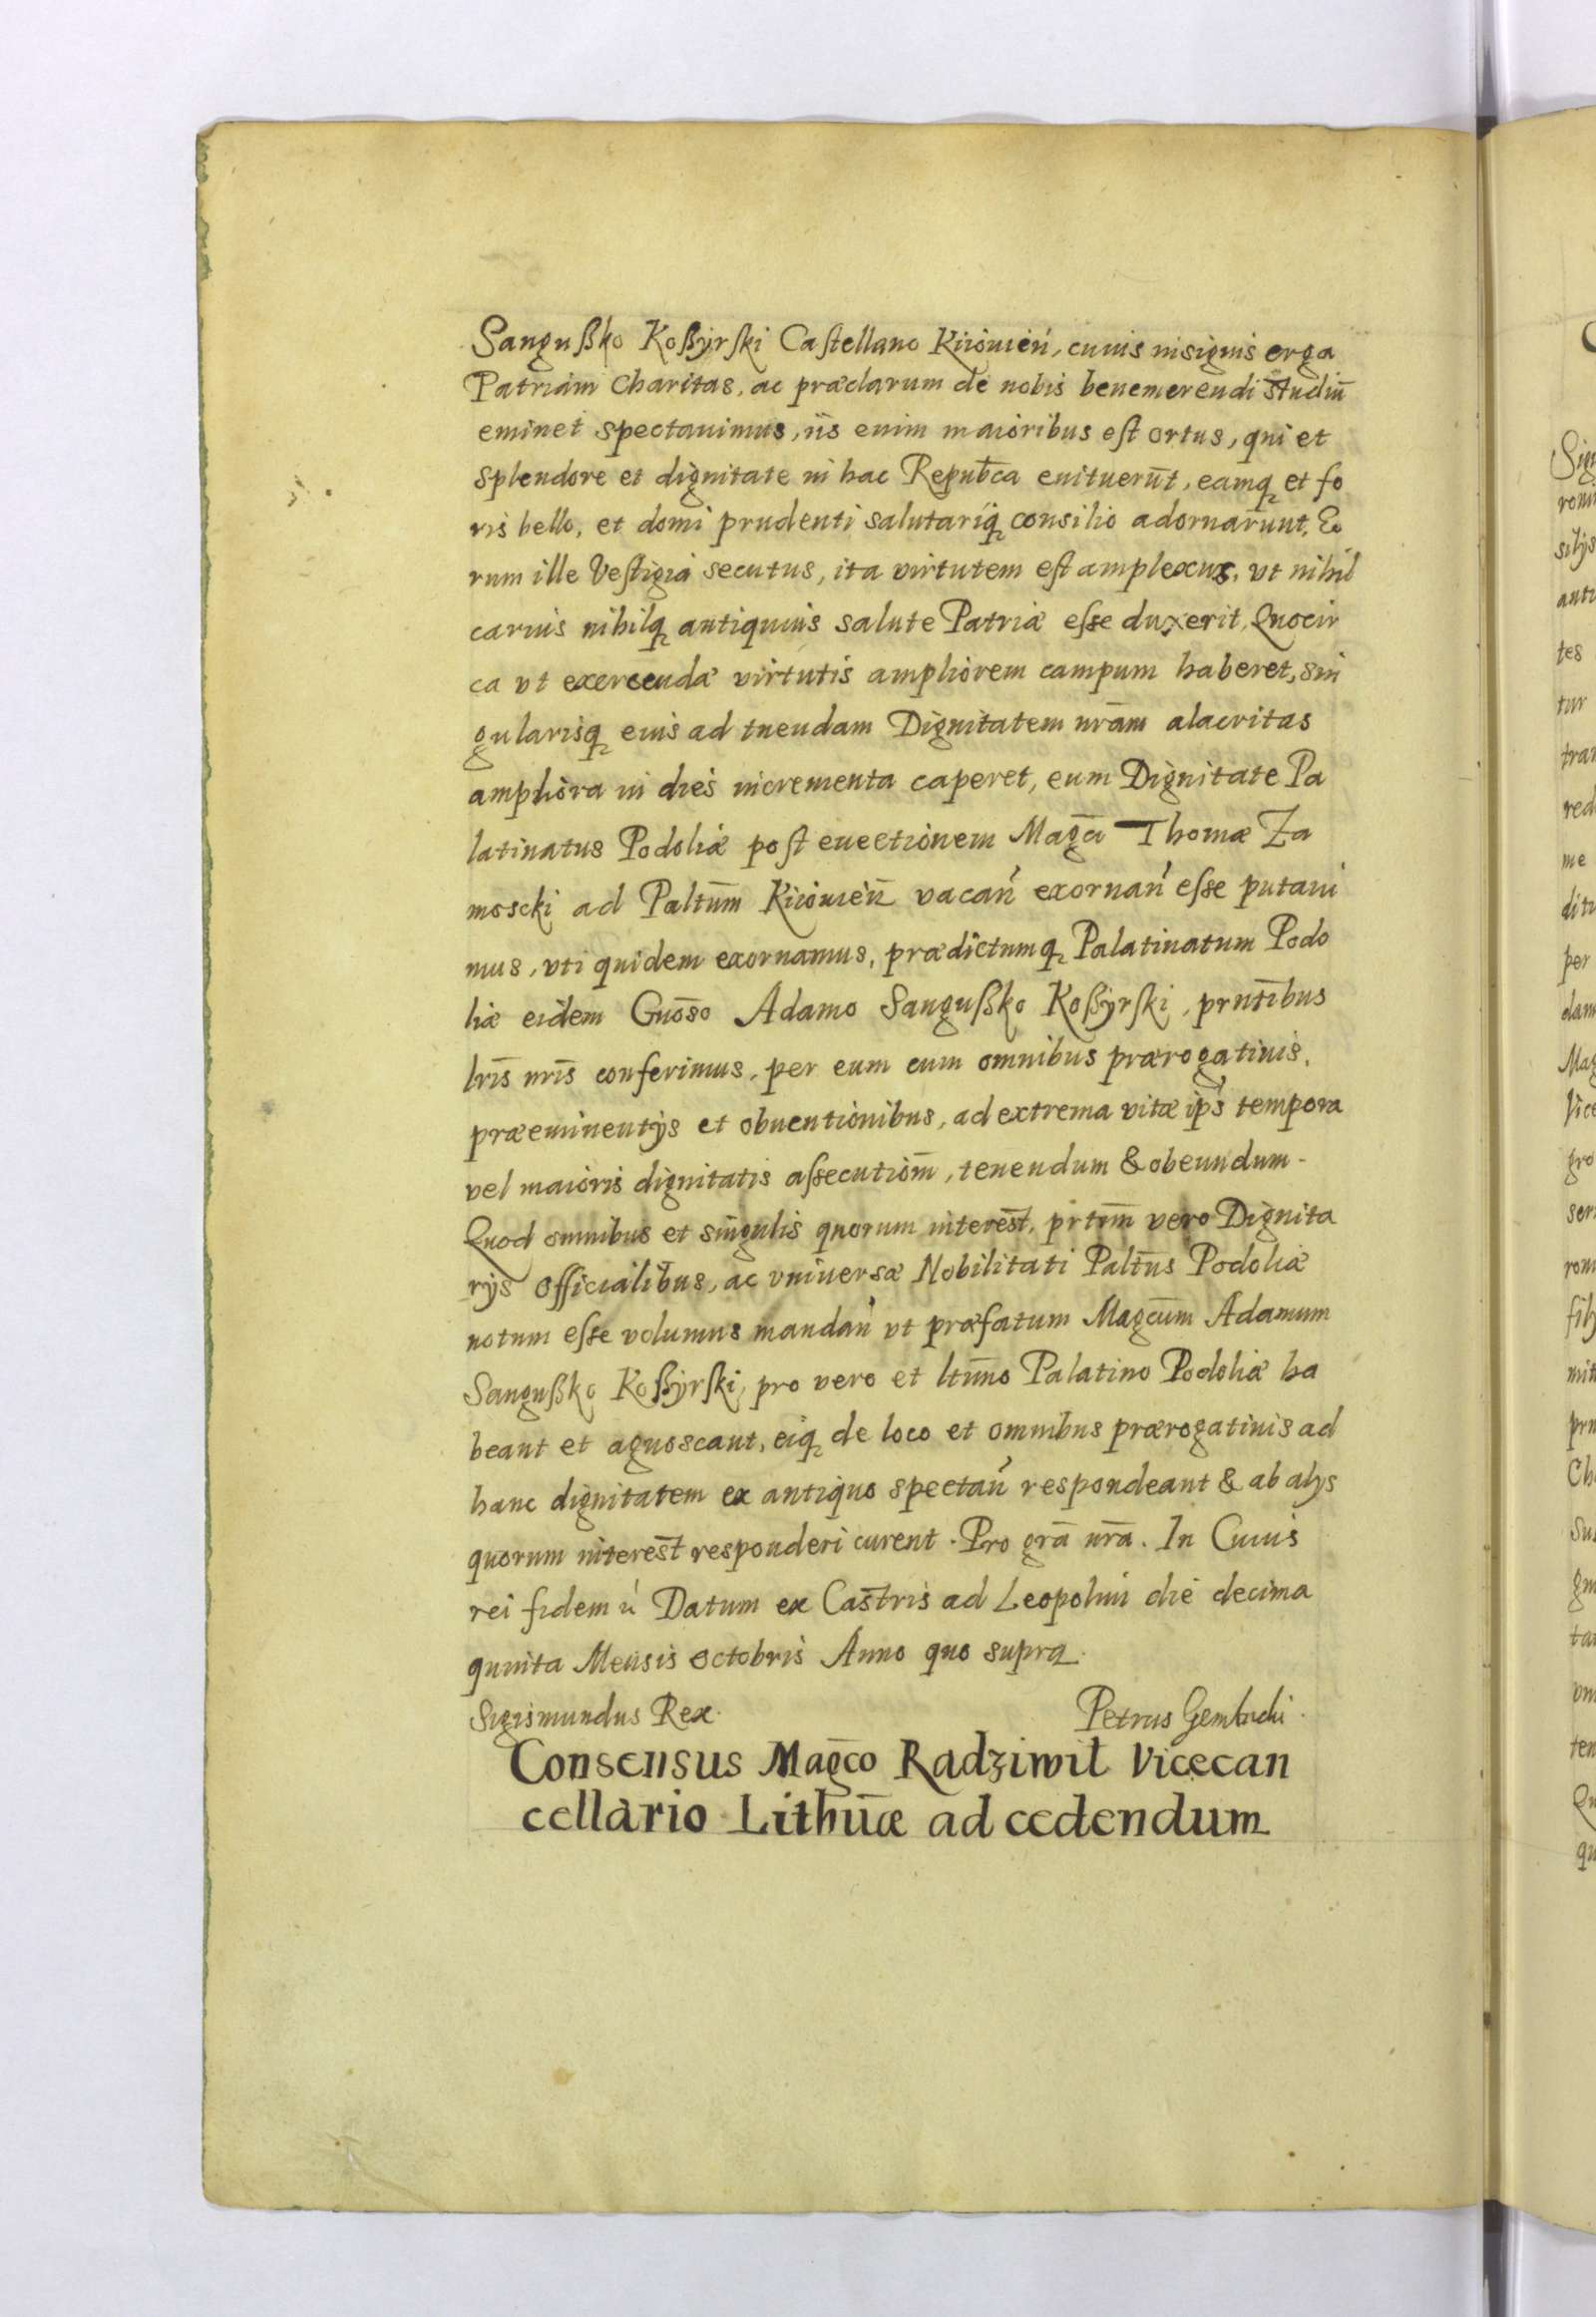 Sangußko Koßÿrski Castellano Kiiouień, cuius insignis erga
Patriam Charitas, ac præclarum de nobis benemerendi studiū
eminet spectauimus, iis enim maioribus est ortus, qui et
splendore et dignitate in hac Repub̄ca enituerūt, eamq̨ et fo
ris bello, et domi prudenti salutariq̨ consilio adornarunt, Eo
rum ille Vestigia secutus, ita virtutem est amplexus, vt nihil
carius nihilq̨ antiquius salute Patriæ esse duxerit, Quocir
ca vt exercendæ virtutis ampliorem campum haberet, sin
gularisq̨ eius ad tuendam Dignitatem nr̄am alacritas
ampliora in dies incrementa caperet, eum Dignitate Pa
latinatus Podoliæ post euectionem Maḡci Thomæ Za
moscki ad Palt̄um Kiiouieñ vacań exornań esse putaui
mus, vti quidem exornamus, prædictumq̨ Palatinatum Podo
liæ eidem Gnōso Adamo Sangußko Koßÿrski, prnt̄ibus
lrīs nrīs conferimus, per eum cum omnibus prærogatiuis,
præeminentÿs et obuentionibus, ad extrema vitæ ip̄s tempora
vel maioris dignitatis assecutiom̄, tenendum & obeundum.
Quod omnibus et singulis quorum interest̄, prt̄im̄ vero Dignita
rÿs officialibus, ac vniuersæ Nobilitati Palt̄us Podoliæ
notum esse volumus mandań vt præfatum Magc̄um Adamum
Sangußko Koßÿrski, pro vero et ltīmo Palatino Podoliæ ha
beant et agnoscant, eiq̨ de loco et omnibus prærogatiuis ad
hanc dignitatem ex antiquo spectań respondeant & ab alÿs
quorum interest̄ responderi curent. Pro grā nrā. In Cuius
rei fidem ń Datum ex Castris ad Leopolim die decima
quinta Mensis octobris Anno quo supra.
Sigismundus Rex. Petrus Gembicki.
Consensus Magc̄o Radziwił Vicecan
cellario Lithūæ ad cedendum